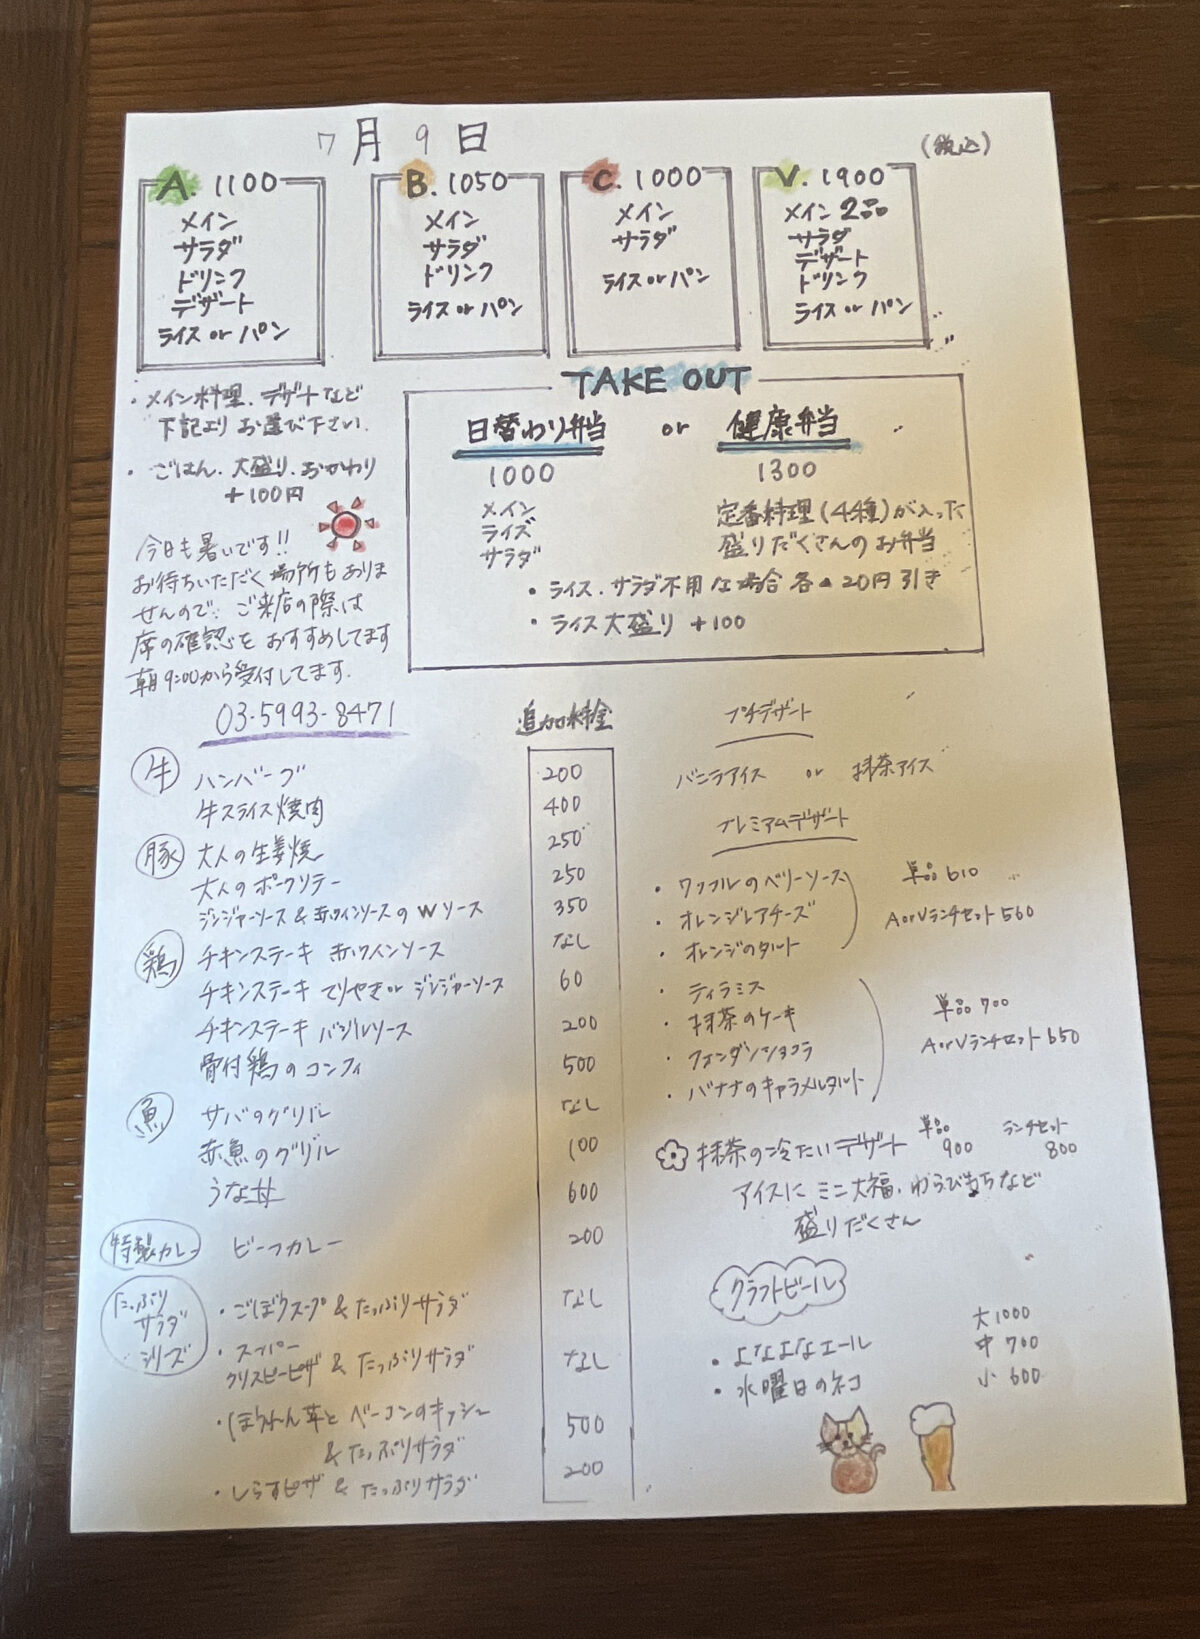 7月9日
(税込)
A. 1100
メイン
サラダ
ドリンク
デザート
ライス or パン
B. 1050
メイン
サラダ
ドリンク
ライス or パン
C. 1000
メイン
サラダ
ライス or パン
V. 1900
メイン 2品
サラダ
デザート
ドリンク
ライス or パン
・メイン料理、デザートなど
下記より お選び下さい.
・ごはん、大盛り、おかわり
+100円
今日も暑いです!!
お待ちいただく場所もありま
せんので、ご来店の際は
席の確認を おすすめしてます
朝9:00から受付してます.
03-5993-8471
TAKE OUT
日替わり弁当 or 健康弁当
1000
メイン
ライス
サラダ
1300
定番料理(4種)が入った
盛りだくさんのお弁当
・ライス、サラダ不用な場合 各▲20円引き
・ライス大盛り +100
追加料金
牛 ハンバーグ 200
牛スライス焼肉 400
豚 大人の生姜焼 250
大人のポークソテー 250
ジンジャーソース&赤ワインソースのWソース 350
鶏 チキンステーキ 赤ワインソース なし
チキンステーキ てりやき or ジンジャーソース 60
チキンステーキ バジルソース 200
骨付鶏のコンフィ 500
魚 サバのグリル なし
赤魚のグリル 100
うな丼 600
特製カレー ビーフカレー 200
たっぷり
サラダ
シリーズ
・ごぼうスープ&たっぷりサラダ なし
・スーパー
クリスピーピザ&たっぷりサラダ なし
・ほうれん草とベーコンのキッシュ 500
&たっぷりサラダ
・しらすピザ&たっぷりサラダ 200
プチデザート
バニラアイス or 抹茶アイス
プレミアムデザート
・ワッフルのベリーソース
・オレンジレアチーズ
・オレンジのタルト
単品 610
AorVランチセット 560
・ティラミス
・抹茶のケーキ
・フォンダンショコラ
・バナナのキャラメルタルト
単品 700
AorVランチセット 650
抹茶の冷たいデザート 単品 900 ランチセット 800
アイスに ミニ大福、わらびもちなど
盛りだくさん
クラフトビール
・よなよなエール
・水曜日のネコ
大 1000
中 700
小 600